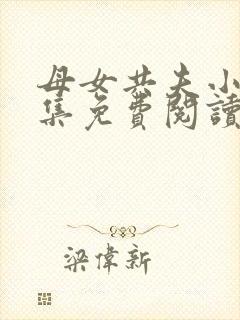 母女共夫小
集免費閱讀
梁偉新